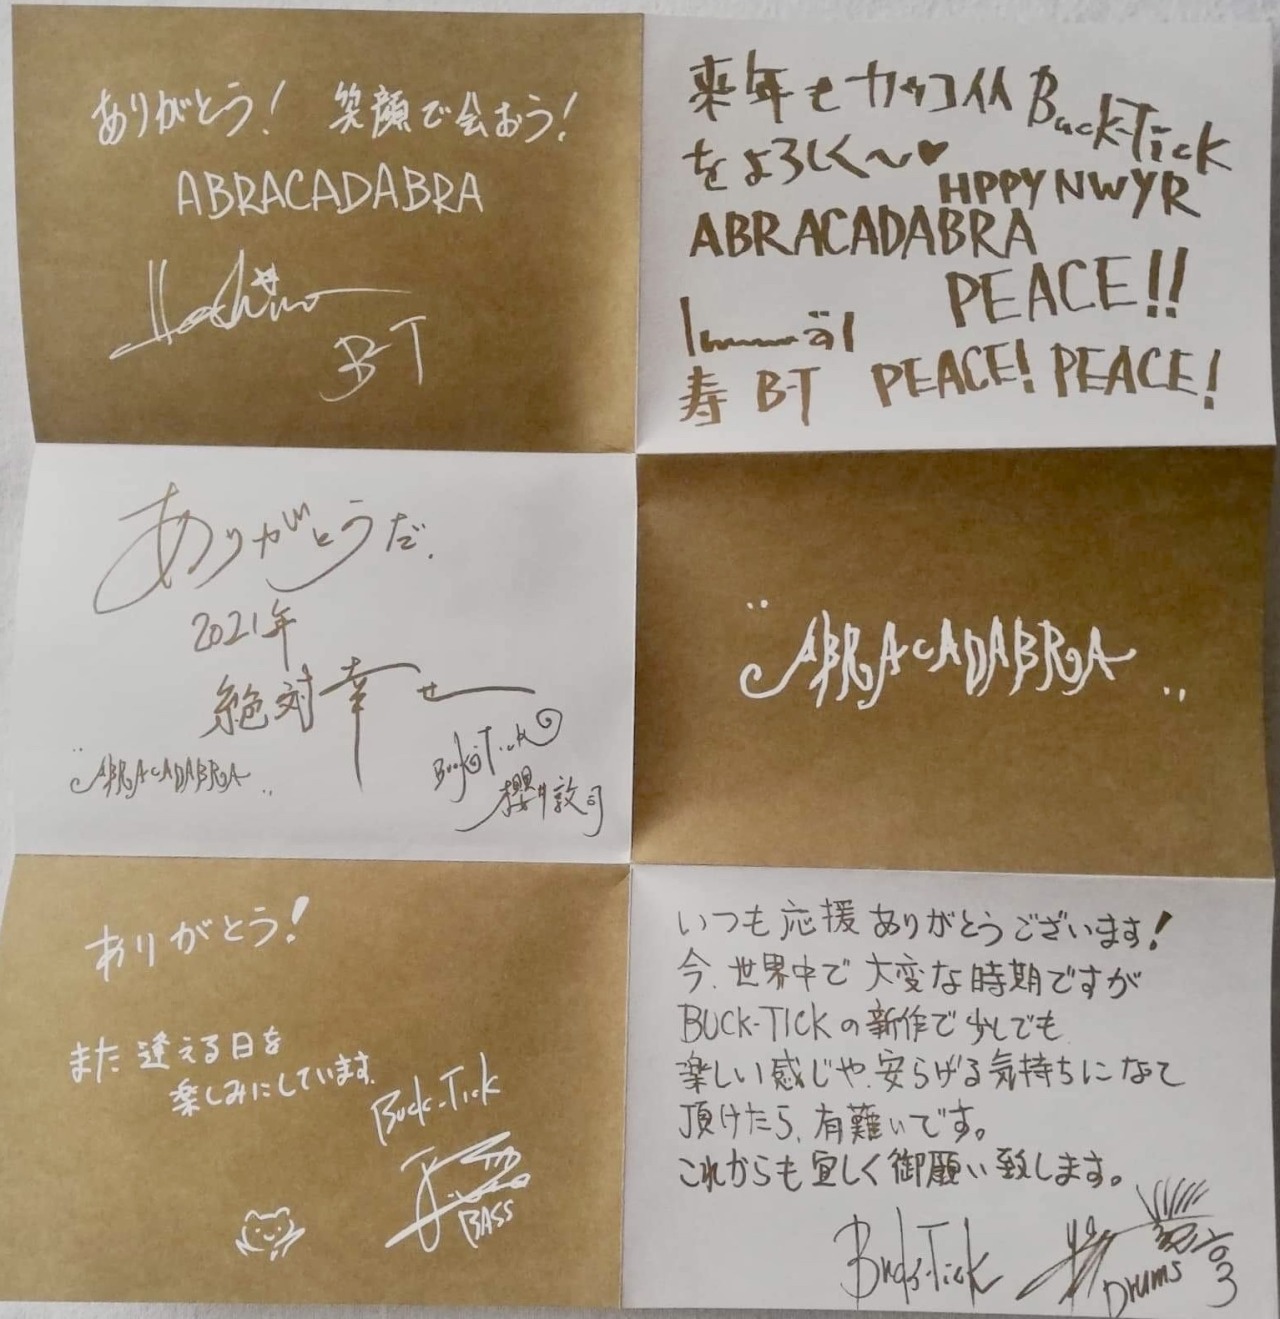 ありがとう! 笑顔で会おう!
ABRACADABRA
Hoshino
B-T
来年もカッコイイ BUCK-TICK
をよろしく〜♥
HPPY NWYR
ABRACADABRA
PEACE!!
寿 B-T PEACE! PEACE!
ありがとうだ.
2021年
絶対幸せ
"ABRACADABRA"
BUCK-TICK
櫻井敦司
"ABRACADABRA"
ありがとう!
また逢える日を
楽しみにしています.
BUCK-TICK
BASS
いつも応援ありがとうございます!
今、世界中で大変な時期ですが
BUCK-TICKの新作で少しでも
楽しい感じや、安らげる気持ちになって
頂けたら、有難いです。
これからも宜しく御願い致します。
BUCK-TICK
DRUMS